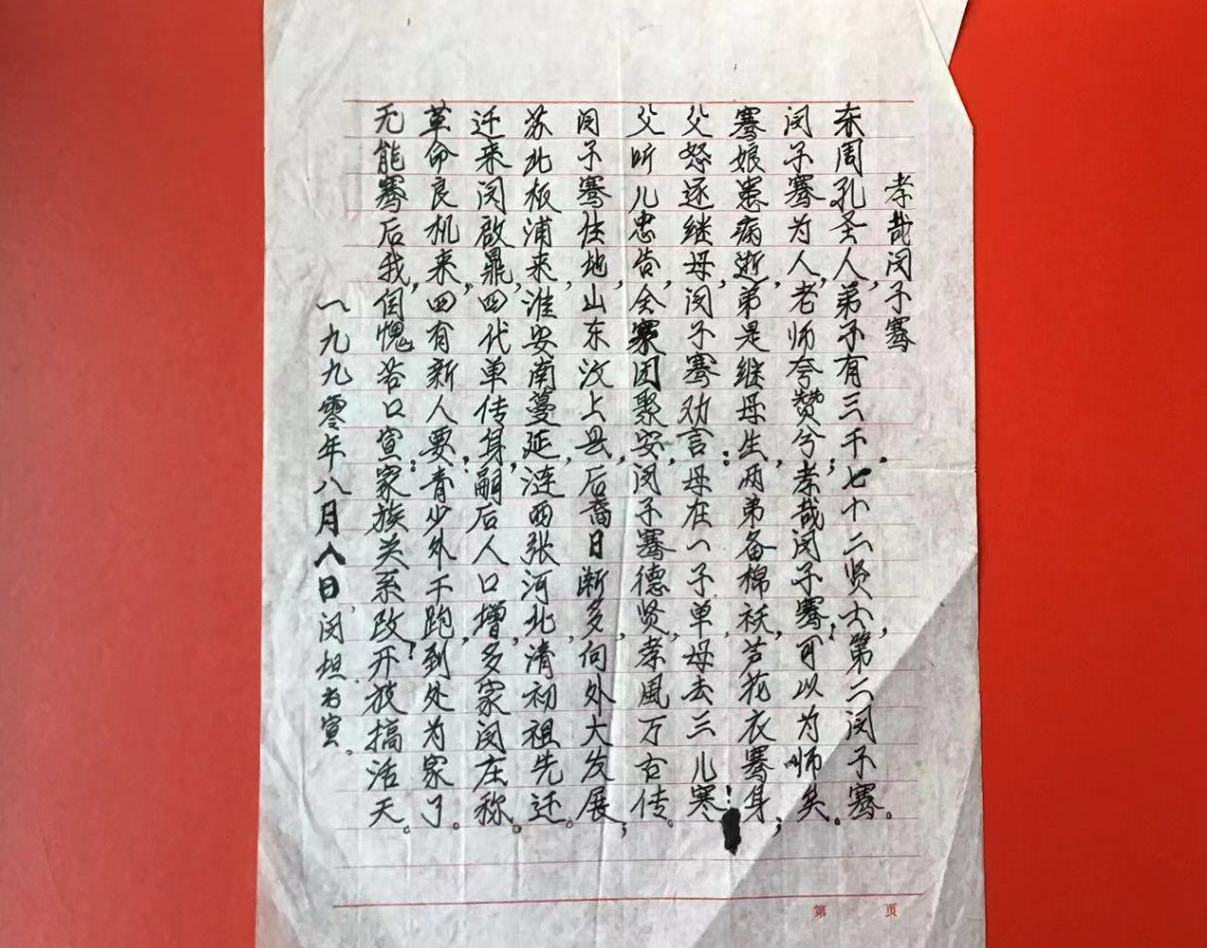 孝哉闵子骞
东周孔圣人,弟子有三千.七十二贤,第二闵子骞。
闵子骞为人,老师夸赞兮;孝哉闵子骞,可以为师矣。
骞娘患病逝,弟是继母生:两弟备棉袄,芦花衣骞身;
父怒逐继母,闵子骞劝言:母在一子单,母去三儿寒!
父听儿忠告,全家团聚安,闵子骞德贤,孝风万古传。
闵子骞住地,山东汶上县,后裔日渐多,向外大发展;
苏北板浦来,淮安南蔓延,涟西张河北,清初祖先迁。
迁来闵啟鼎,四代单传身,嗣后人口增,多家闵庄称。
革命良机来,四有新人要:青少外干跑,到处为家了。
无能骞后我,自愧苦口宣:家族关系改,开放搞活天。
一九九零年八月八日,闵坦为宣。
第 页